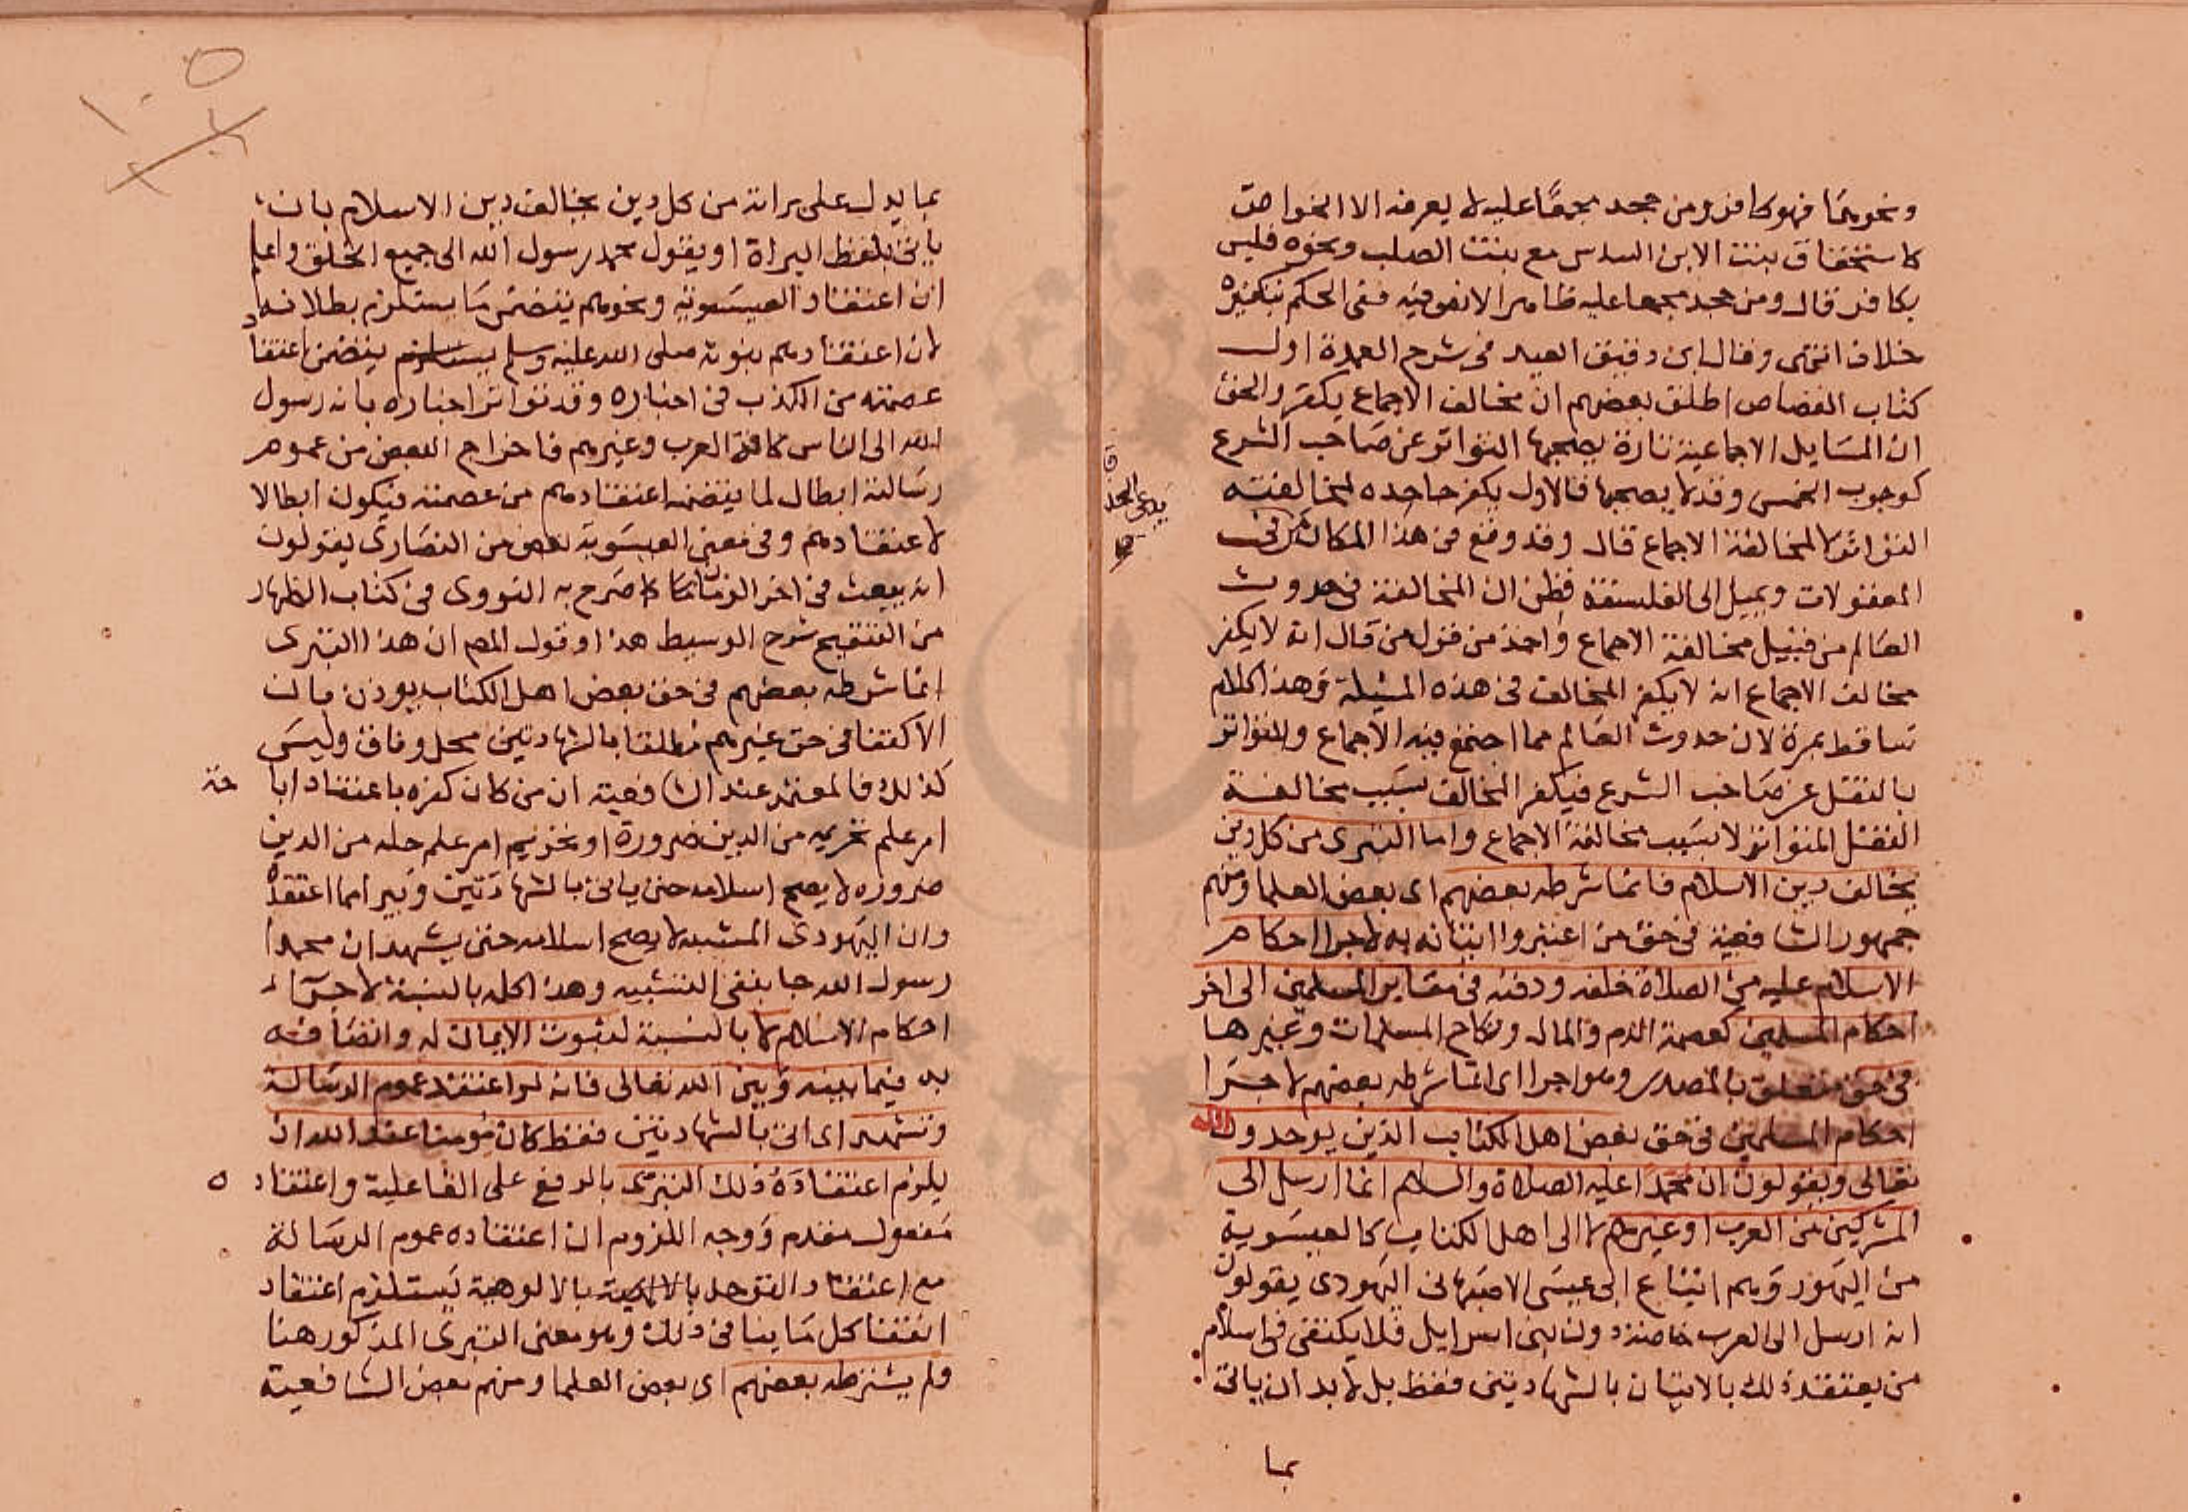 ونحوهما فهو كافر ومن جحد مجمعا عليه لا يعرفه الا الخواص
كاستحقاق بنت الابن السدس مع بنت الصلب ونحوه فليس
بكافر قال ومن جحد مجمعا عليه ظاهرا لا نص فيه ففى الحكم بتكفيره
خلاف انتهى وقال ابن دقيق العيد فى شرح العمدة اول
كتاب القصاص اطلق بعضهم ان مخالف الاجماع يكفر والحق
ان المسايل الاجماعية تارة يصحبها التواتر عن صاحب الشرع
كوجوب الخمس وقد لا يصحبها فالاول يكفر جاحده لمخالفته
التواتر لا لمخالفة الاجماع قال وقد وقع فى هذا المكان من
يدعى الحذق
المعقولات ويميل الى الفلسفة فظن ان المخالفة فى حدوث
العالم من قبيل مخالفة الاجماع واخذ من قول من قال انه لا يكفر
مخالف الاجماع انه لا يكفر المخالف فى هذه المسئلة وهذا كلام
ساقط بمرة لان حدوث العالم مما اجتمع فيه الاجماع والتواتر
بالنقل عن صاحب الشرع فيكفر المخالف بسبب مخالفة
النقل المتواتر لا بسبب مخالفة الاجماع واما التبرى من كل دين
يخالف دين الاسلام فانما شرطه بعضهم اى بعض العلما ومنهم
جمهور الشافعية فى حق من اعتبروا اتيانه به لاجرا احكام
الاسلام عليه من الصلاة خلفه ودفنه فى مقابر المسلمين الى اخر
احكام المسلمين كعصمة الدم والمال ونكاح المسلمات وغيرها
فى حق متعلق بالمصدر وهو اجرا اى انما شرطه بعضهم لاجرا
احكام المسلمين فى حق بعض اهل الكتاب الذين يوحدون الله
تعالى ويقولون ان محمدا عليه الصلاة والسلام انما ارسل الى
المشركين من العرب او غيرهم لا الى اهل الكتاب كالعيسوية
من اليهود وهم اتباع ابى عيسى الاصبهانى اليهودى يقولون
انه ارسل الى العرب خاصة دون بنى اسرايل فلا يكتفى فى اسلام
من يعتقد ذلك بالاتيان بالشهادتين فقط بل لا بد ان ياتى
بما
بما يدل على براته من كل دين يخالف دين الاسلام بان
ياتى بلفظ البراة او يقول محمد رسول الله الى جميع الخلق واعلم
ان اعتقاد العيسوية ونحوهم يتضمن ما يستلزم بطلانه
لان اعتقادهم نبوته صلى الله عليه وسلم يتضمن اعتقاد
عصمته من الكذب فى اخباره وقد تواتر اخباره بانه رسول
الله الى الناس كافة العرب وغيرهم فاخراج البعض من عموم
رسالته ابطال لما يتضمنه اعتقادهم من عصمته فيكون ابطالا
لاعتقادهم وفى معنى العيسوية بعض من النصارى يقولون
انه يبعث فى اخر الزمان كما صرح به النووى فى كتاب الظهار
من التنقيح شرح الوسيط هذا وقول المص ان هذا التبرى
انما شرطه بعضهم فى حق بعض اهل الكتاب يوذن بان
الاكتفا فى حق غيرهم مطلقا بالشهادتين محل وفاق وليس
كذلك فالمعتمد عند الشافعية ان من كان كفره باعتقاد اباحة
امر علم تحريمه من الدين ضرورة او تحريم امر علم حله من الدين
ضروره لا يصح اسلامه حتى ياتى بالشهادتين ويبرا مما اعتقده
وان اليهودى المشبه لا يصح اسلامه حتى يشهد ان محمدا
رسول الله جا بنفى التشبيه وهذا كله بالنسبة لاجرا
احكام الاسلام لا بالنسبة لثبوت الايمان له واتصافه
به فيما بينه وبين الله تعالى فانه لو اعتقد عموم الرسالة
وتشهد اى اتى بالشهادتين فقط كان مومنا عند الله اذ
يلزم اعتقاده ذلك التبرى بالرفع على الفاعلية واعتقاده
مفعول مقدم ووجه اللزوم ان اعتقاده عموم الرسالة
مع اعتقاد التوحد بالالوهية يستلزم اعتقاد
انتفا كل ما ينافى ذلك وهو معنى التبرى المذكور هنا
ولم يشترطه بعضهم اى بعض العلما ومنهم بعض الشافعية